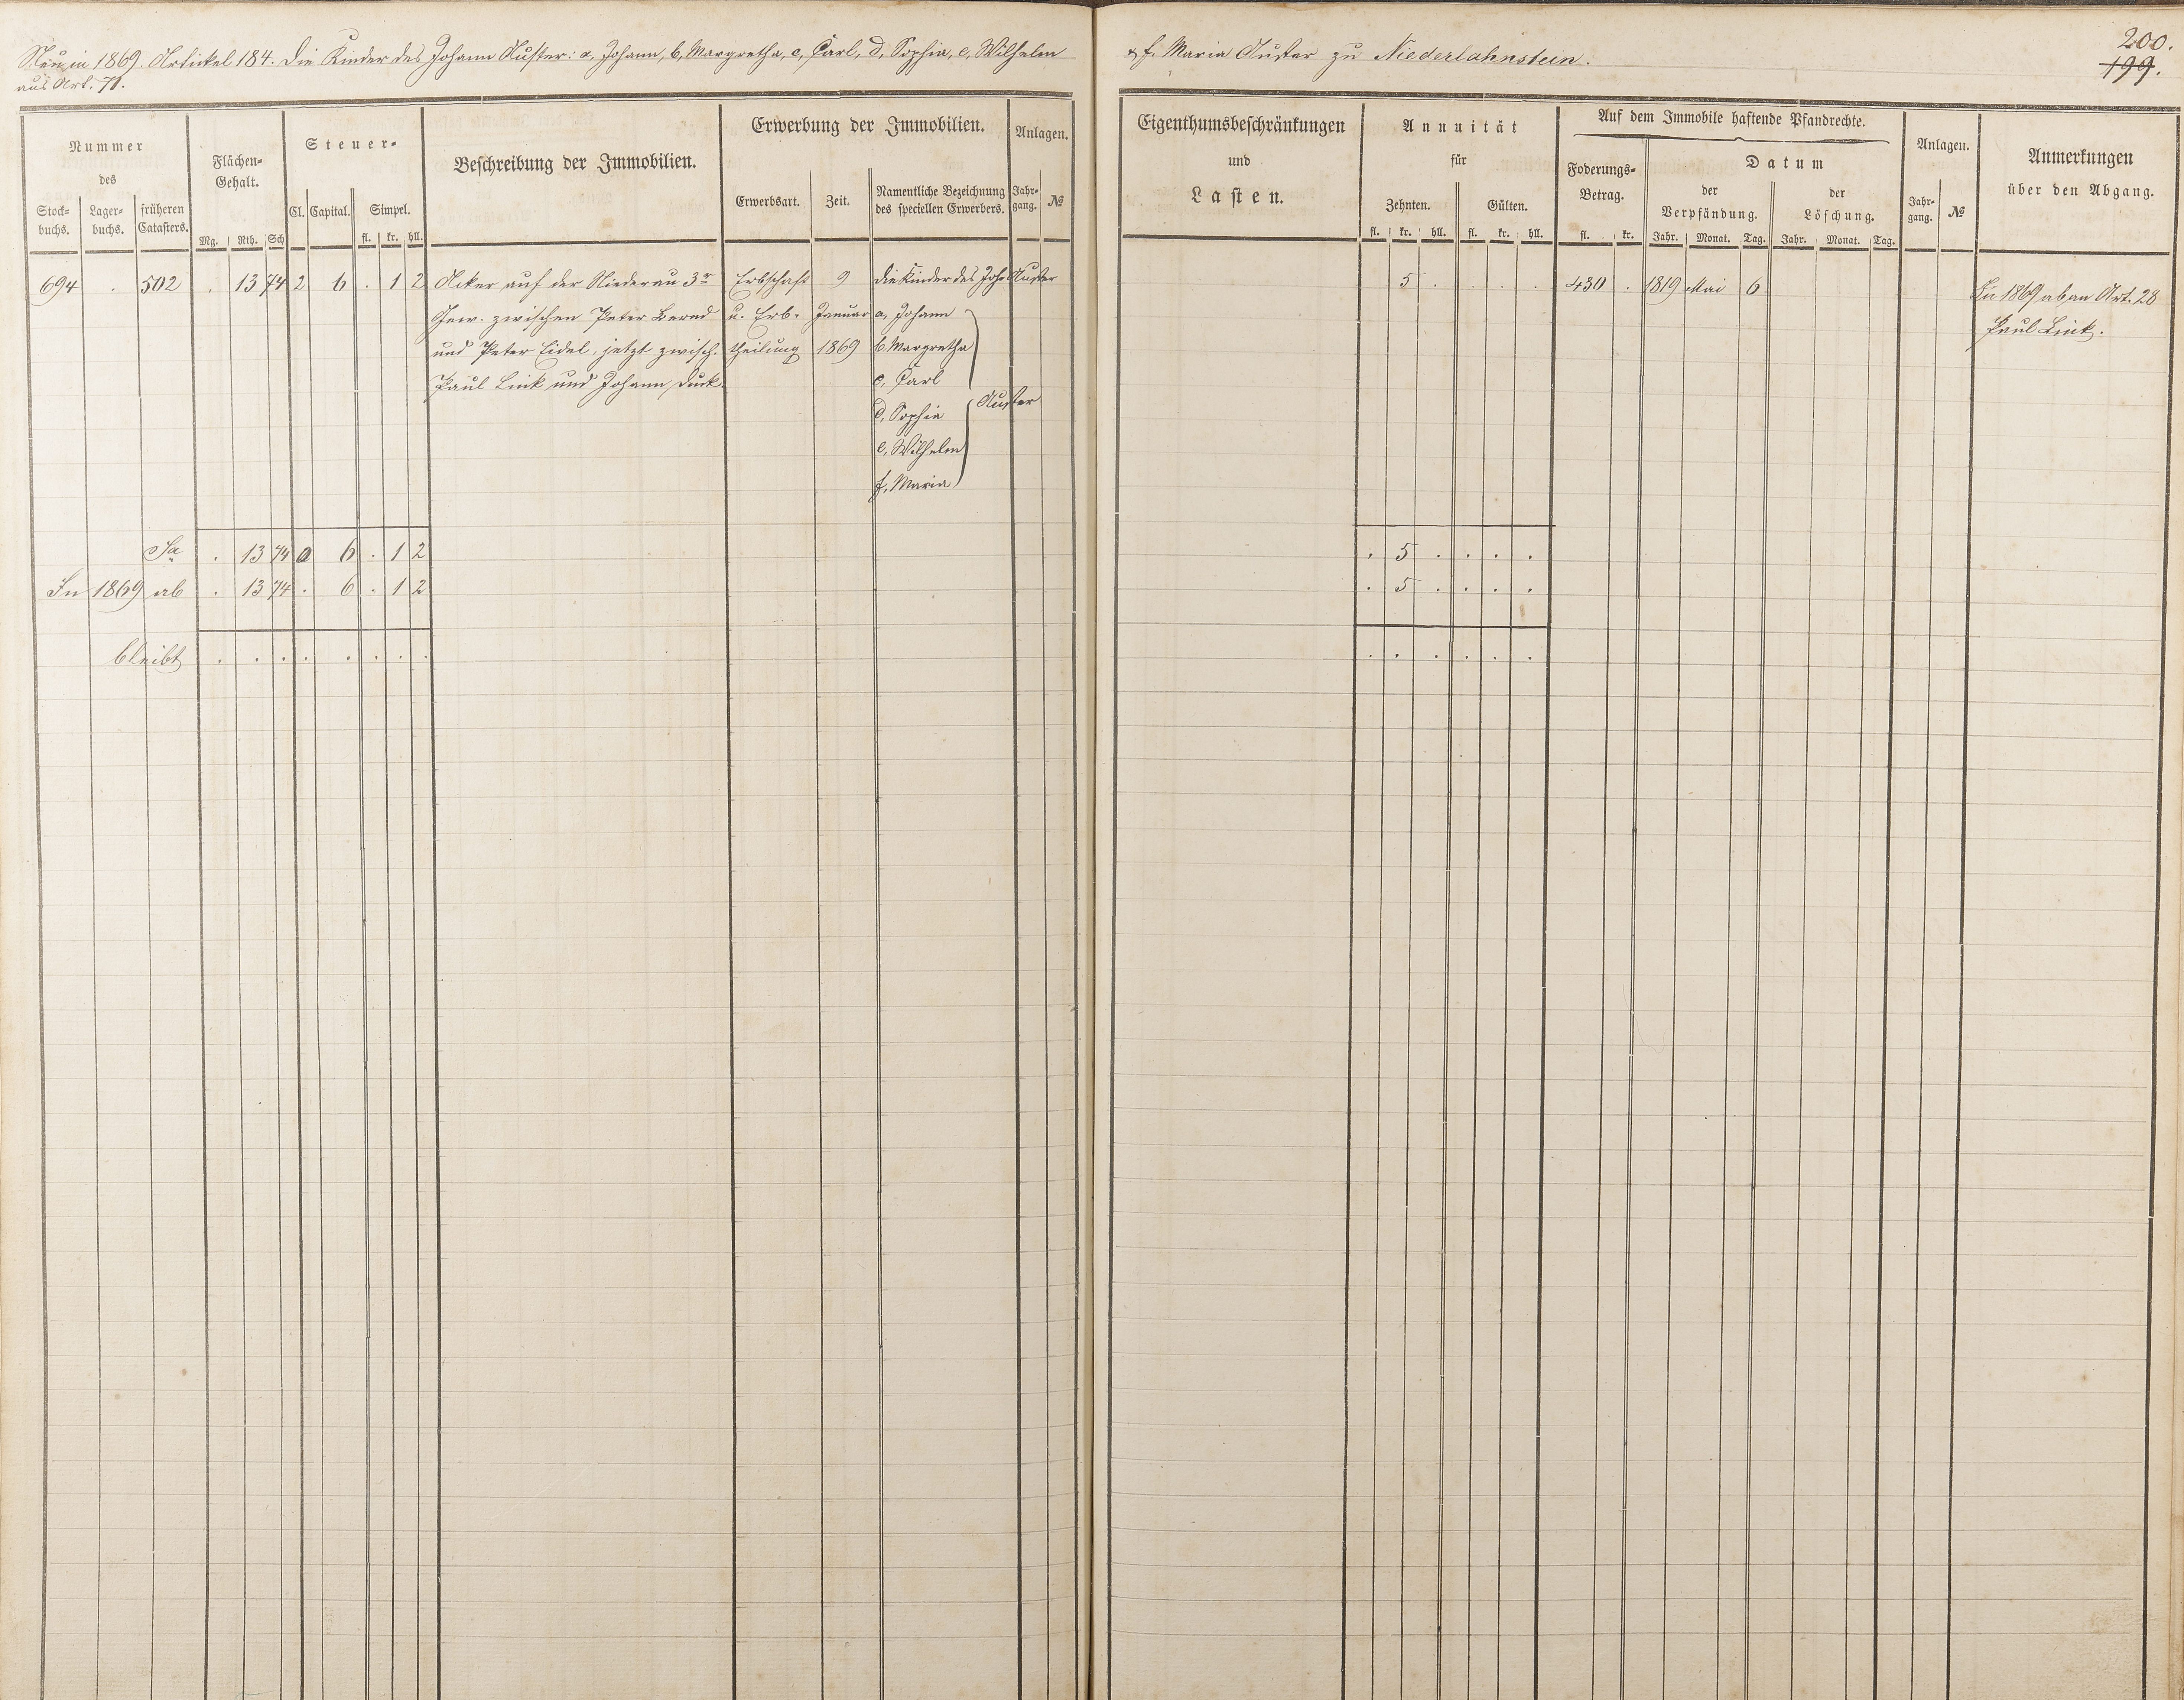 Neu in 1869. Artickel 184. Die Kinder des Johann Auster: a, Johann, b, Margretha, c, Carl, d, Sophia, e, Wilhelm
aus Art. 71.
Nummer
des
Stock-
buchs.
Lager-
buchs.
früheren
Catasters.
Flächen-
Gehalt.
Mg. Rth. Sch
Steuer-
Cl. Capital. Simpel.
fl. kr. hll.
Beschreibung der Immobilien.
Erwerbung der Immobilien.
Erwerbsart. Zeit. Namentliche Bezeichnung
des speciellen Erwerbers.
Anlagen.
Jahr-
gang. №
694 . 502 . 13 74 2 6 . 1 2 Acker auf der Niederau 3r Erbschaft 9 die Kinder des Joh. Auster
Gew. zwischen Peter Bernd u. Erb- Januar a, Johann
und Peter Eidel, jetzt zwisch. theilung 1869 b, Margretha
Paul Link und Johann Duck. c, Carl
Auster
d, Sophia
e, Wilhelm
f, Maria
Sa . 13 74 0 6 . 1 2
In 1869 ab . 13 74 . 6 . 1 2
bleibt . . . . . . . .
& f. Maria Auster zu Niederlahnstein.
200.
199.
Eigenthumsbeschränkungen
und
Lasten.
Annuität
für
Zehnten. Gülten.
fl. kr. hll. fl. kr. hll.
Auf dem Immobile haftende Pfandrechte.
Foderungs-
Betrag.
fl. kr.
Datum
der
Verpfändung.
Jahr. Monat. Tag.
der
Löschung.
Jahr. Monat. Tag.
Anlagen.
Jahr-
gang. №
Anmerkungen
über den Abgang.
5 . . . . 430 . 1819 Mai 6 In 1869 ab an Art. 28
Paul Link.
. 5 . . . .
. 5 . . . .
. . . . . .